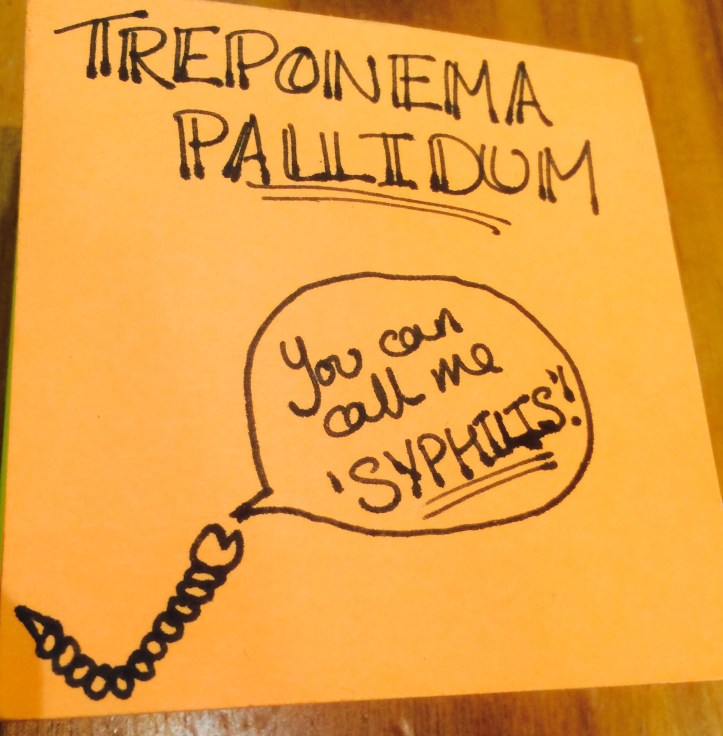 TREPONEMA
PALLIDUM
You can
call me
'SYPHILIS'!